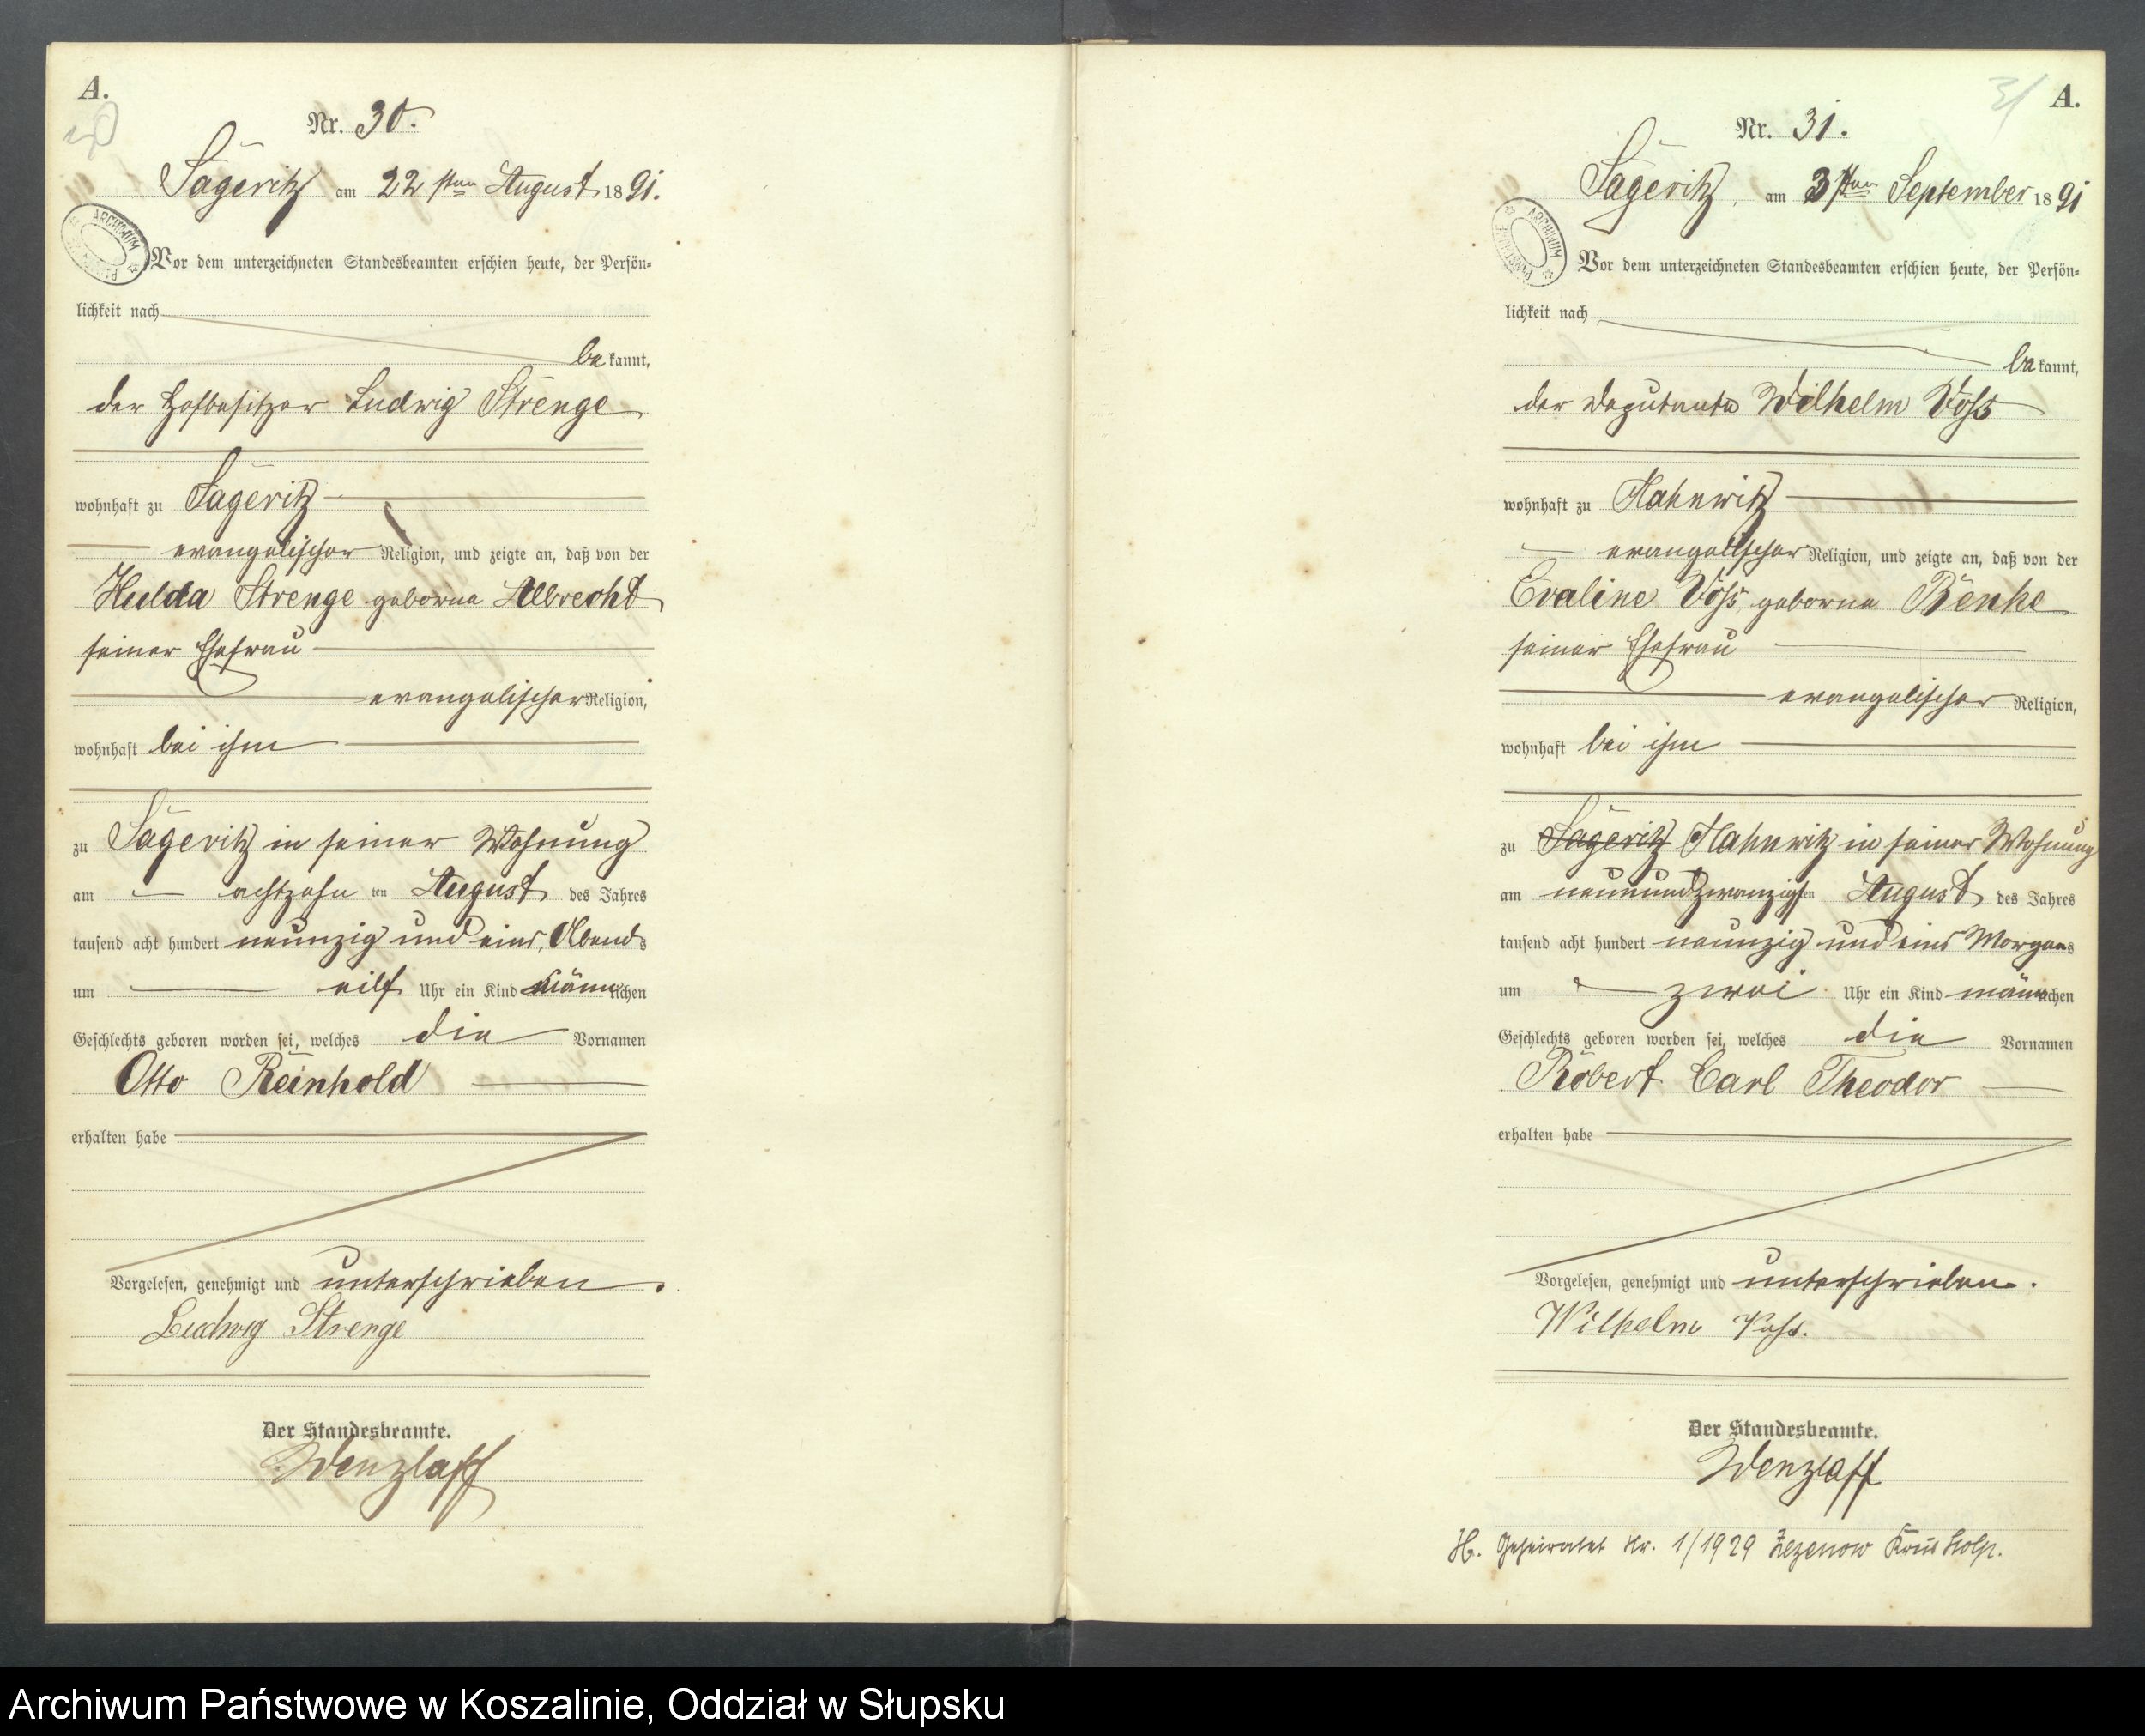 A.
30
Nr. 30.
Sageritz am 22 sten August 1891.
ARCHIWUM
Vor dem unterzeichneten Standesbeamten erschien heute, der Persön=
lichkeit nach
bekannt,
der Hofbesitzer Ludwig Strenge
wohnhaft zu Sageritz
evangelischer Religion, und zeigte an, daß von der
Hulda Strenge geborne Albrecht
seiner Ehefrau
evangelischer Religion,
wohnhaft bei ihm
zu Sageritz in seiner Wohnung
am achtzehn ten August des Jahres
tausend acht hundert neunzig und eins, Abends
um eilf Uhr ein Kind männlichen
Geschlechts geboren worden sei, welches die Vornamen
Otto Reinhold
erhalten habe
Vorgelesen, genehmigt und unterschrieben.
Ludwig Strenge
Der Standesbeamte.
Wenzlaff
31 A.
Nr. 31.
Sageritz, am 3 ten September 1891
ARCHIWUM
Vor dem unterzeichneten Standesbeamten erschien heute, der Persön=
lichkeit nach
bekannt,
der Deputante Wilhelm Voß
wohnhaft zu Hahnwitz
evangelischer Religion, und zeigte an, daß von der
Evaline Voß, geborne Benke
seiner Ehefrau
evangelischer Religion,
wohnhaft bei ihm
zu Sageritz Hahnwitz in seiner Wohnung
am neunundzwanzigsten August des Jahres
tausend acht hundert neunzig und eins Morgens
um zwei Uhr ein Kind männlichen
Geschlechts geboren worden sei, welches die Vornamen
Robert Carl Theodor
erhalten habe
Vorgelesen, genehmigt und unterschrieben.
Wilhelm Voß.
Der Standesbeamte.
Wenzlaff
H. Geheiratet Nr. 1/1929 Zezenow Kreis Stolp.
Archiwum Państwowe w Koszalinie, Oddział w Słupsku